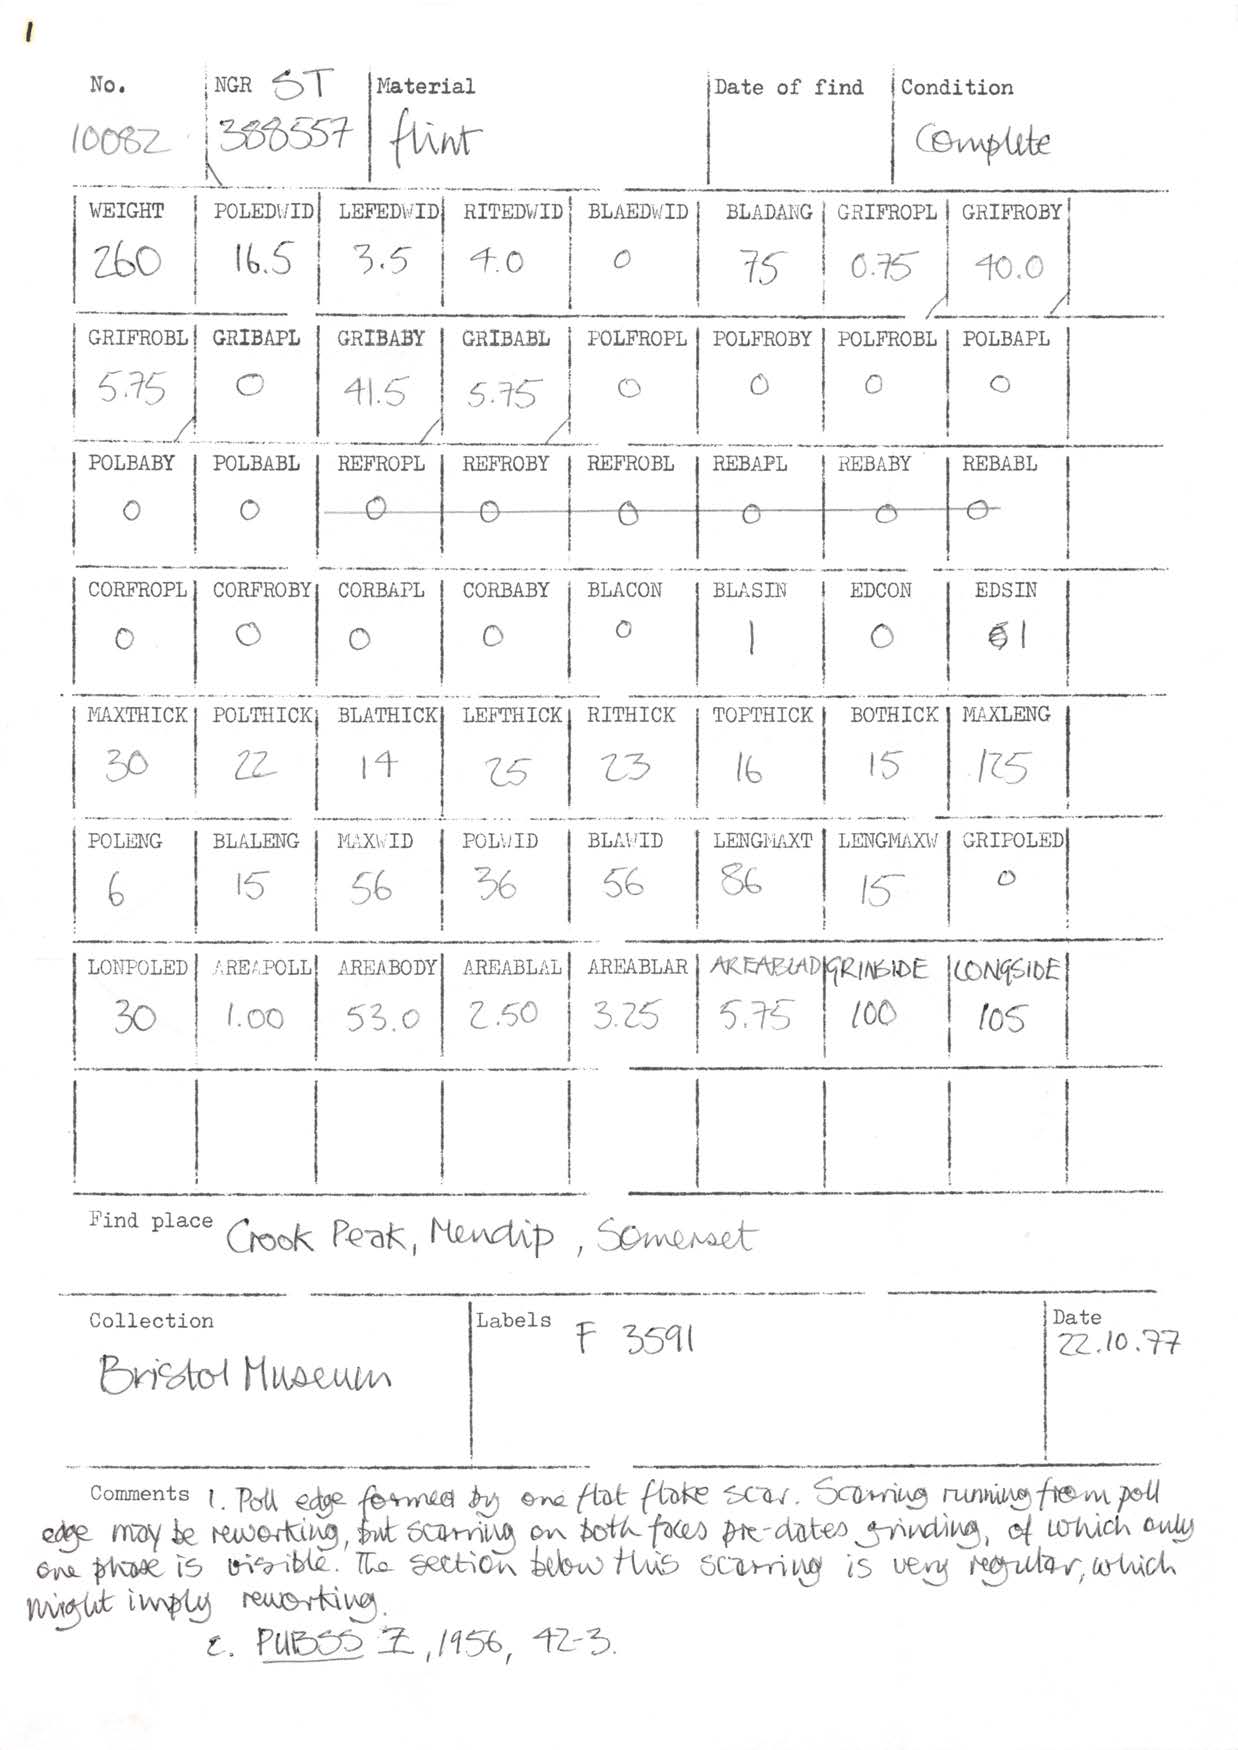 1
No. NGR ST Material Date of find Condition
10082 388557 flint Complete
WEIGHT POLEDWID LEFEDWID RITEDWID BLAEDWID BLADANG GRIFROPL GRIFROBY
260 16.5 3.5 4.0 0 75 0.75 40.0
GRIFROBL GRIBAPL GRIBABY GRIBABL POLFROPL POLFROBY POLFROBL POLBAPL
5.75 0 41.5 5.75 0 0 0 0
POLBABY POLBABL REFROPL REFROBY REFROBL REBAPL REBABY REBABL
0 0 0 0 0 0 0 0
CORFROPL CORFROBY CORBAPL CORBABY BLACON BLASIN EDCON EDSIN
0 0 0 0 0 1 0 1
MAXTHICK POLTHICK BLATHICK LEFTHICK RITHICK TOPTHICK BOTHICK MAXLENG
30 22 14 25 23 16 15 125
POLENG BLALENG MAXWID POLWID BLAWID LENGMAXT LENGMAXW GRIPOLED
6 15 56 36 56 86 15 0
LONPOLED AREAPOLL AREABODY AREABLAL AREABLAR AREABLAD GRINSIDE LONGSIDE
30 1.00 53.0 2.50 3.25 5.75 100 105
Find place Crook Peak, Mendip, Somerset
Collection Labels F 3591 Date
Bristol Museum 22.10.77
Comments 1. Poll edge formed by one flat flake scar. Scarring running from poll
edge may be reworking, but scarring on both faces pre-dates grinding, of which only
one phase is visible. The section below this scarring is very regular, which
might imply reworking.
2. PUBSS 7, 1956, 42-3.